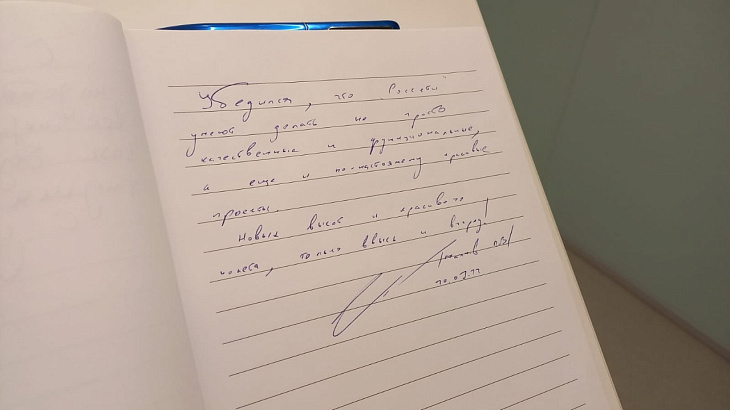 Убедился, что "Россети"
умеют делать не просто
качественные и функциональные,
а еще и по-настоящему красивые
проекты.
Новых высот и красивого
полета, только ввысь и вперед!